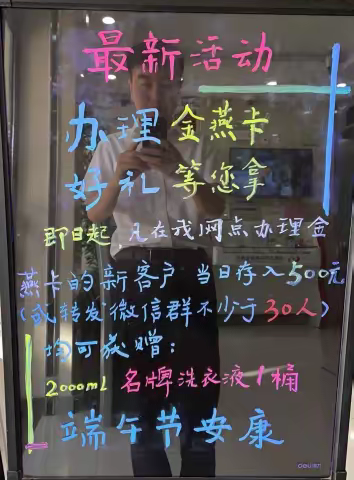 最新活动
办理金燕卡
好礼等您拿
即日起，凡在我网点办理金
燕卡的新客户当日存入500元
(或转发微信群不少于30人)
均可获赠：
2000ml 名牌洗衣液1桶
端午节安康